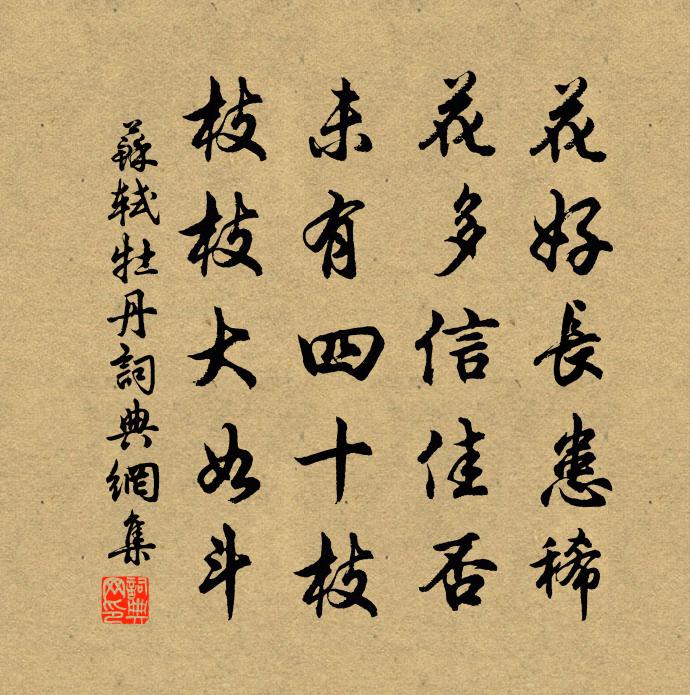 花好長患稀
花多信佳否
未有四十枝
枝枝大如斗
蘇軾牡丹詞典網集
詞典網印